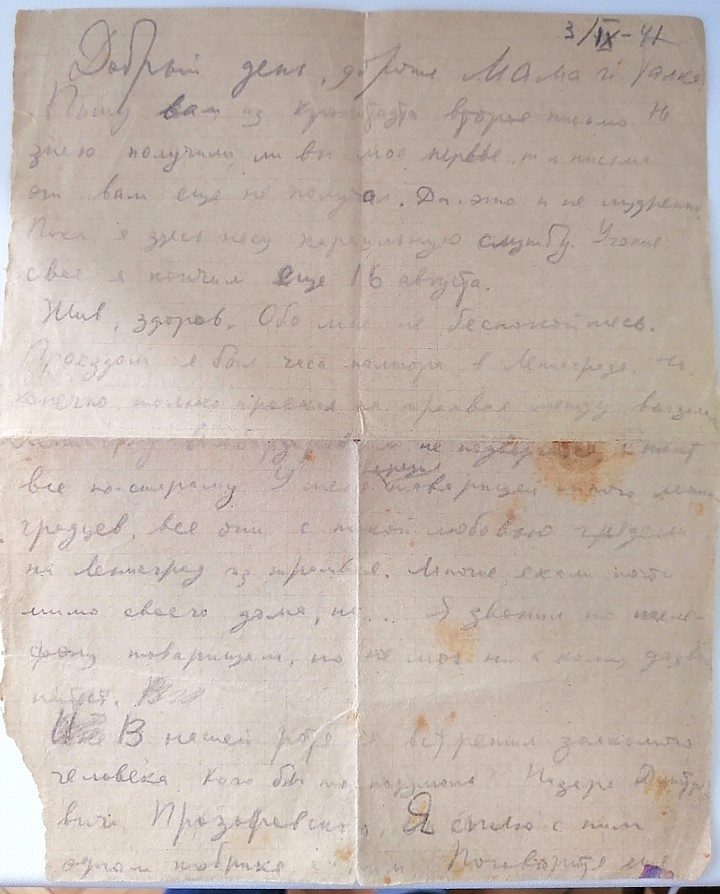 3/IX-41
Добрый день, дорогие Мама и Галка
Пишу вам из Кронштадта второе письмо. Не
знаю получили ли вы мое первое, т.к письма
от вам еще не получал. Да это и не мудренно.
Пока я здесь несу караульную службу. Учение
свое я кончил еще 16 августа.
Жив, здоров. Обо мне не беспокойтесь.
Проездом я был часа полтора в Ленинграде. Но
конечно только проехал на трамвае между
не подвергался и стоит
все по-старому. У меня среди товарищей много ленин
градцев, все они с такой любовью глядели
на Ленинград из трамвая. Многие ехали почти
мимо своего дома, но... Я звонил по теле-
фону товарищам, но не мог ни к кому
В нашей роте я встретил знакомого
человека Кого бы ты подумала? Назара Дмитри
вича Прозоровского. Я сплю с ним
одном Поговорите еще